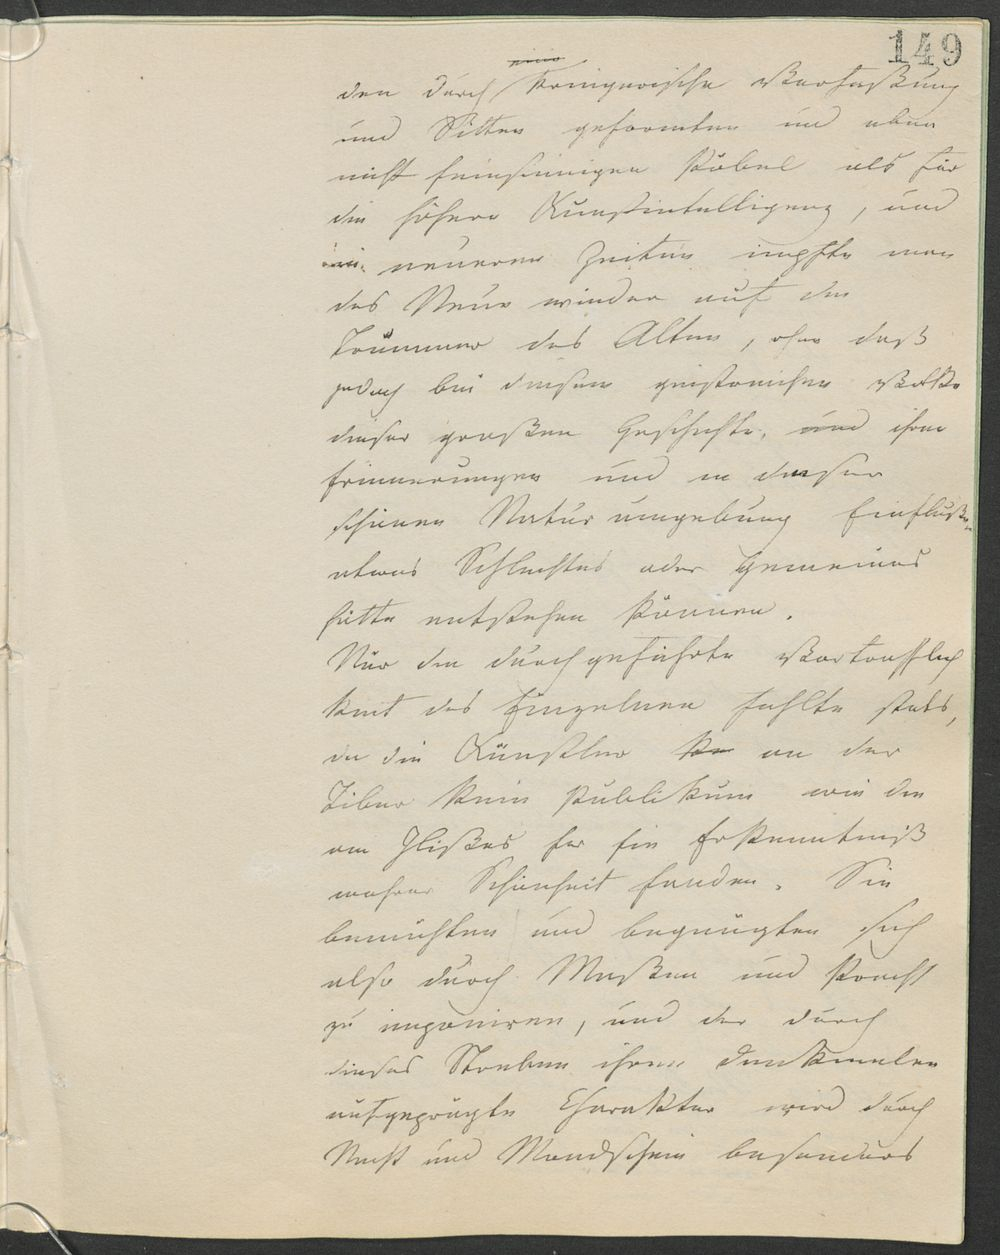 149
den durch kriegerische Verfaßung
und Sitten geformten und eben
nicht feinsinnigen Pöbel als für
die höhere Kunstintelligenz, und
in neueren Zeiten impfte man
das Neue wieder auf die
Trümmer des Alten, ohne daß
jedoch bei diesem geistreichen Volke
dieser großen Geschichte, und ihren
Erinnerungen und in dieser
schönen Naturumgebung Einfluße
etwas Schlechtes oder Gemeines
hätte entstehen können.
Nur die durchgeführte Vortrefflich
keit des Einzelnen fehlte stets,
da die Künstler an der
Tiber kein Publikum wie die
am Ilißus für die Erkenntniß
wahrer Schönheit fanden. Sie
bemühten und begnügten sich
also durch Maßen und Pracht
zu imponiren, und der durch
dieses Streben ihren Denkmalen
aufgeprägte Charakter wird durch
Nacht und Mondschein besonders